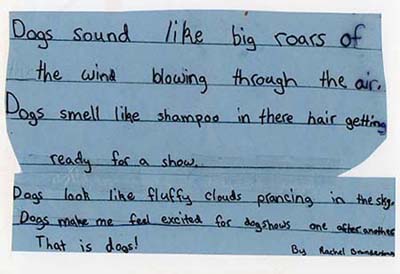 Dogs sound like big roars of
the wind blowing through the air.
Dogs smell like shampoo in there hair getting
ready for a show.
Dogs look like fluffy clouds prancing in the sky.
Dogs make me feel excited for dogshows one after another
That is dogs!
By Rachel